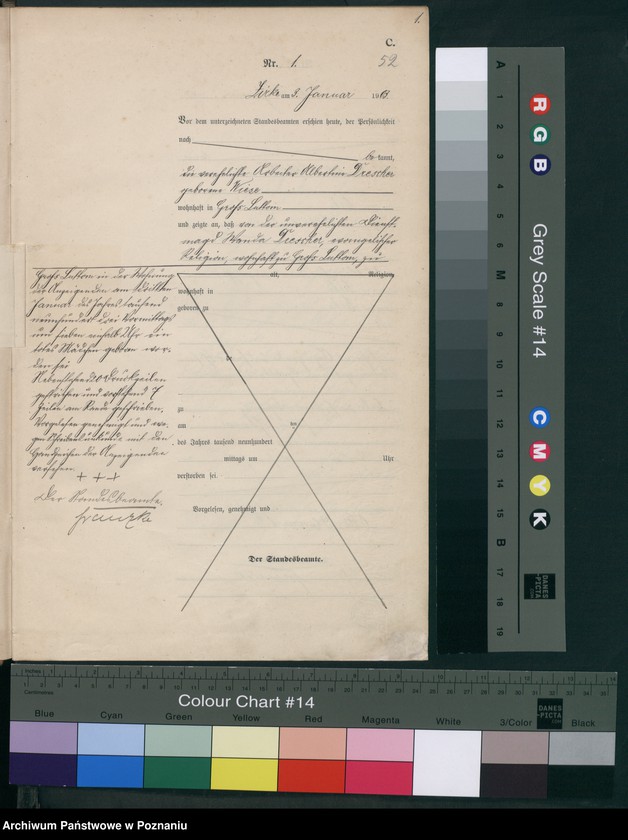 1.
C.
Nr. 1.
52
Zirke am 3. Januar 1903
Vor dem unterzeichneten Standesbeamten erschien heute, der Persönlichkeit
nach
be kannt,
die verehelichte Arbeiter Albertine Drescher
geborene Kiese
wohnhaft in Groß Luttom
und zeigte an, daß von der unverehelichten Dienst-
magd Wanda Drescher, evangelischer
Religion, wohnhaft zu Groß Luttom, zu
alt, Religion,
wohnhaft in
geboren zu
zu
am
des Jahres tausend neunhundert
mittags um Uhr
verstorben sei.
Vorgelesen, genehmigt und
Der Standesbeamte.
Groß Luttom in der Wohnung
der Anzeigenden am dritten
Januar des Jahres tausend
neunhundert drei Vormittags
um sieben einhalb Uhr ein
totes Mädchen geboren wor-
den sei
Nebenstehend 20 Druckzeilen
gestrichen und vorstehend 7
Zeilen am Rande geschrieben.
Vorgelesen genehmigt und we-
gen Schreibensunkunde mit den
Handzeichen der Anzeigenden
versehen.
+ + +
Der Standesbeamte.
A 1 2 3 4 5 6 M 8 9 10 11 12 13 14 15 B 17 18 19
R
G
B
Grey Scale #14
C
M
Y
K
DANES
-PICTA
.COM
Centimetres
Colour Chart #14
DANES
-PICTA
.COM
Blue Cyan Green Yellow Red Magenta White 3/Color Black
Archiwum Państwowe w Poznaniu